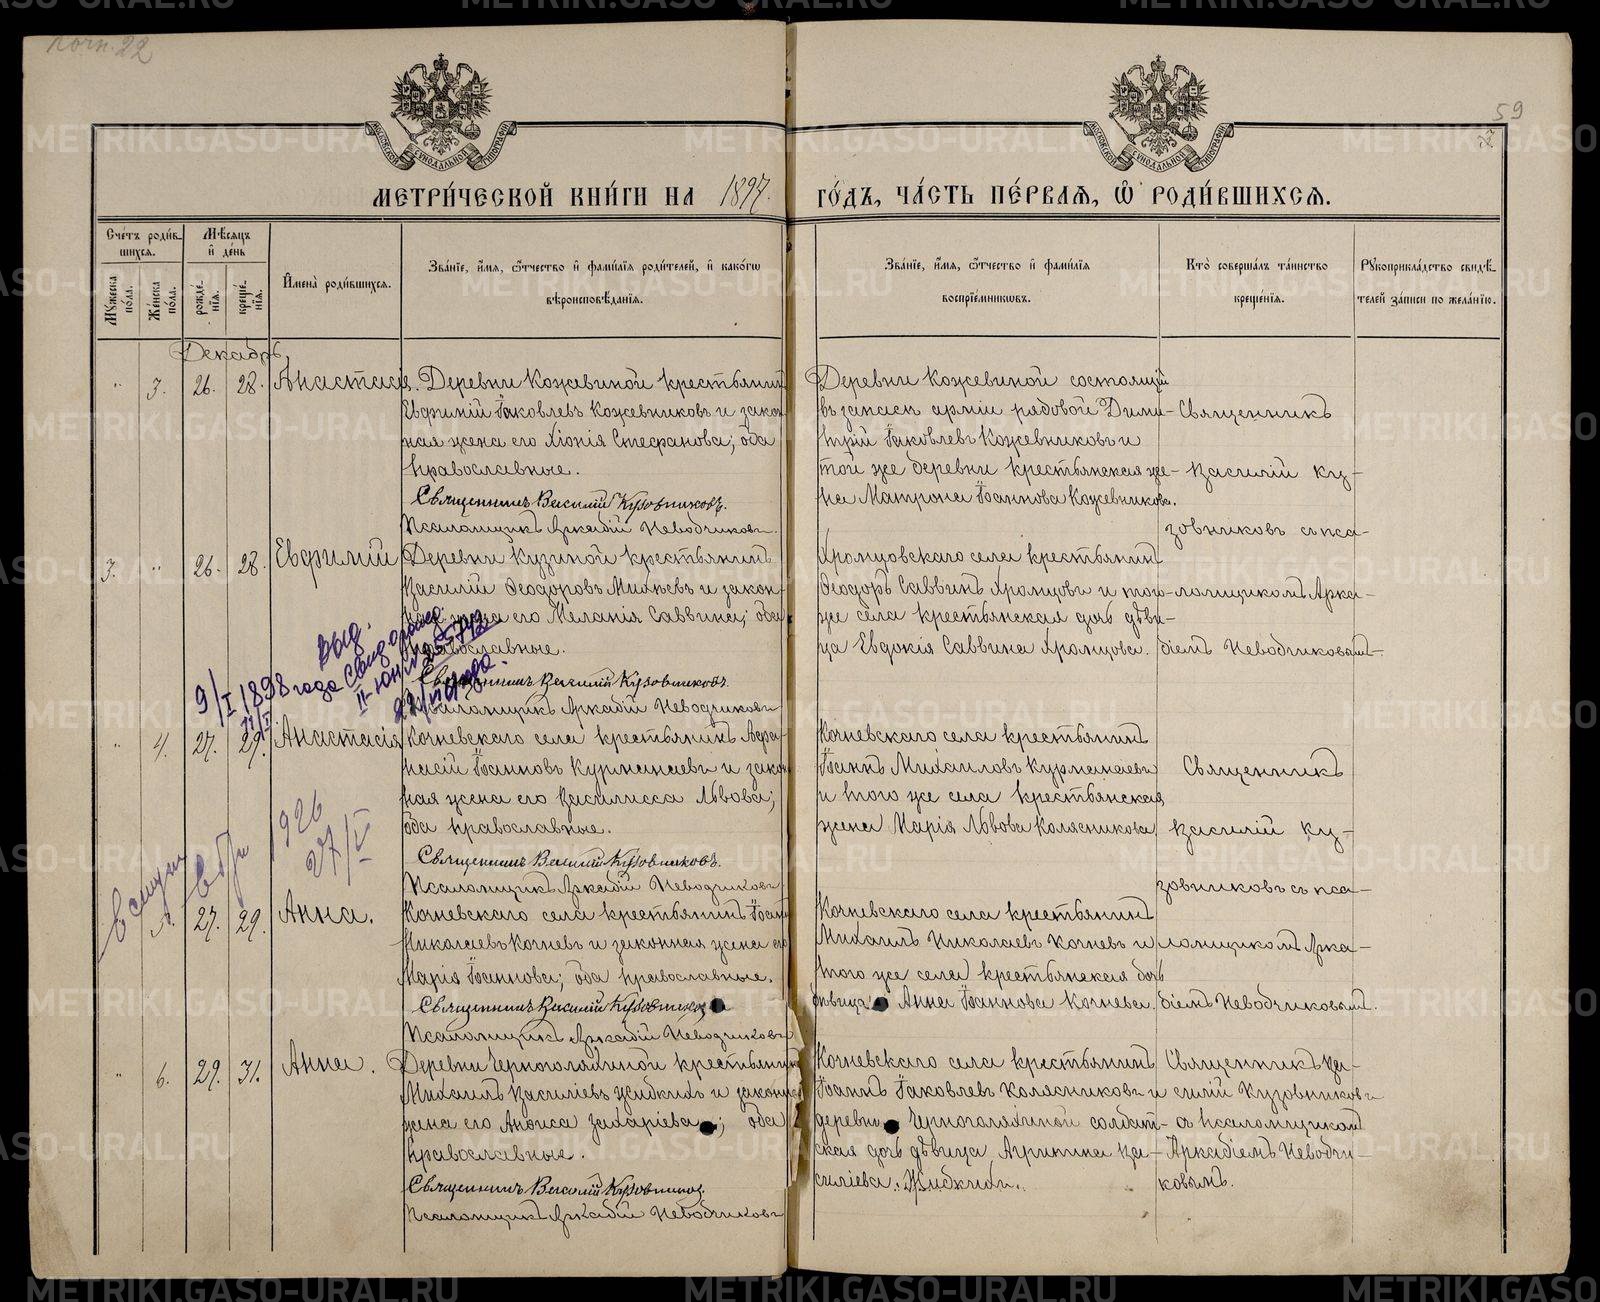 59
МЕТРИ́ЧЕСКОЙ КНИ́ГИ НА 1897. ГО́ДЪ, ЧА́СТЬ ПЕ́РВАѦ, Ѡ҆ РОДИ́ВШИХСѦ.
Сче́тъ роди́в-
шихсѧ.
Мѣ́сѧцъ
и҆ де́нь
Мꙋ́жеска по́ла.
Же́нска по́ла.
рожде́-
нїѧ.
креще́-
нїѧ.
И҆мена̀ роди́вшихсѧ.
Зва́нїе, и҆́мѧ, ѻ҆́тчество и҆ фами́лїѧ роди́телей, и҆ како́гѡ
вѣроисповѣ́данїѧ.
Зва́нїе, и҆́мѧ, ѻ҆́тчество и҆ фами́лїѧ
воспрїе́мникѡвъ.
Кто̀ соверша́лъ та́инство
креще́нїѧ.
Рꙋкоприкла́дство свидѣ́-
телей за́писи по жела́нїю.
Декабрь
„ 3. 26. 28. Анастасія.
Деревни Кожевиной крестьянинъ
Евфимій Іаковлевъ Кожевниковъ и закон-
ная жена его Хіонія Стефанова; оба
православные.
Священникъ Василій Кузовниковъ.
Псаломщикъ Аркадій Неводчиковъ.
Деревни Кожевиной состоящій
въ запасѣ арміи рядовой Дими-
трій Іаковлевъ Кожевниковъ и
той же деревни крестьянская же-
на Матрона Іоаннова Кожевникова.
Священникъ
Василій Ку-
зовниковъ съ пса-
ломщикомъ Арка-
діемъ Неводчиковымъ.
3. „ 26. 28. Евфимій
Деревни Кузиной крестьянинъ
Василій Ѳеодоровъ Михѣевъ и закон-
ная жена его Меланія Саввина; оба
православные.
Священникъ Василій Кузовниковъ.
Псаломщикъ Аркадій Неводчиковъ
Хромцовскаго села крестьянинъ
Ѳеодоръ Саввинъ Хромцовъ и того
же села крестьянская дочь дѣви-
ца Евдокія Саввина Хромцова.
выд.
9/I 1898 года
„ 4. 27. 29. Анастасія
Кочневскаго села крестьянинъ Афа-
насій Іоанновъ Курманаевъ и закон-
ная жена его Василисса Львова;
оба православные.
Священникъ Василій Кузовниковъ.
Псаломщикъ Аркадій Неводчиковъ
Кочневскаго села крестьянинъ
Іоаннъ Михаиловъ Курманаевъ
и того же села крестьянская
жена Марія Львова Колясникова
Священникъ
Василій Ку-
зовниковъ съ пса-
ломщикомъ Арка-
діемъ Неводчиковымъ.
1926
27/V
27. 29. Анна.
Кочневскаго села крестьянинъ Іоаннъ
Николаевъ Кочневъ и законная жена его
Марія Іоаннова; оба православные.
Священникъ Василій Кузовников
Псаломщикъ Аркадій Неводчиковъ
Кочневскаго села крестьянинъ
Михаилъ Николаевъ Кочневъ и
того же села крестьянская дочь
дѣвица Анна Іоаннова Кочнева.
„ 6. 29. 31. Анна.
Деревни Черноголяшной крестьянинъ
Михаилъ Василіевъ Жидкихъ и законная
жена его Анѳиса Захаріева; оба
православные.
Священникъ Василій Кузовников.
Псаломщикъ Аркадій Неводчиковъ
Кочневскаго села крестьянинъ
Іоаннъ Іаковлевъ Колясниковъ и
деревни Черноголяшной солдат-
ская дочь дѣвица Агрипина Ва-
силіева Жидкихъ.
Священникъ Ва-
силій Кузовниковъ
съ псаломщикомъ
Аркадіемъ Неводчи-
ковымъ.
METRIKI.GASO-URAL.RU